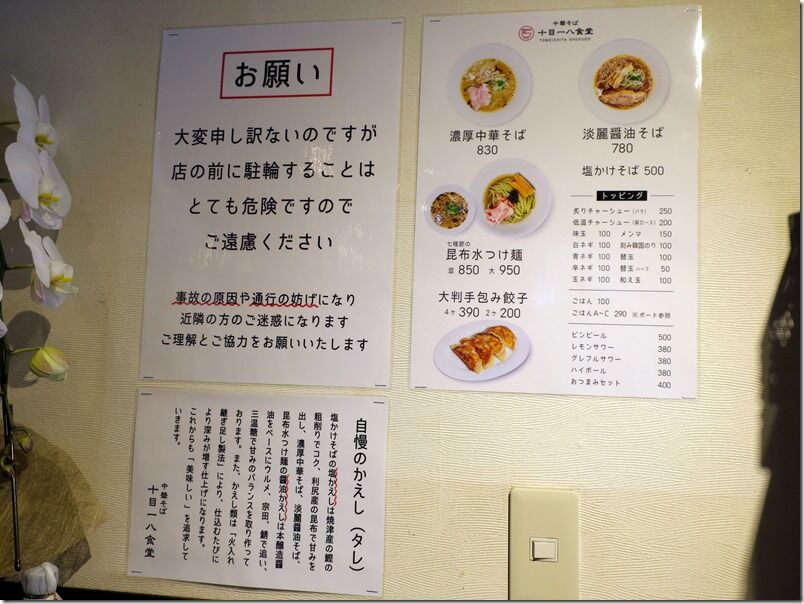 お願い
大変申し訳ないのですが
店の前に駐輪することは
とても危険ですので
ご遠慮ください
事故の原因や通行の妨げになり
近隣の方のご迷惑になります
ご理解とご協力をお願いいたします
中華そば
十目一八食堂
TOMEICHIYA SHOKUDO
濃厚中華そば
830
淡麗醤油そば
780
塩かけそば 500
七種節の
昆布水つけ麺
並 850 大 950
大判手包み餃子
4ヶ 390 2ヶ 200
トッピング
炙りチャーシュー(バラ) 250
低温チャーシュー(肩ロース) 200
味玉 100 メンマ 150
白ネギ 100 刻み韓国のり 100
青ネギ 100 替玉 100
辛ネギ 100 替玉ハーフ 50
玉ネギ 100 和え玉 100
ごはん 100
ごはんA~C 290 ※ボード参照
ビンビール 500
レモンサワー 380
グレフルサワー 380
ハイボール 380
おつまみセット 400
自慢のかえし(タレ)
塩かけそばの塩かえしは焼津産の鰹の
粗削りでコク、利尻産の昆布で甘みを
出し、濃厚中華そば、淡麗醤油そば、
昆布水つけ麺の醤油かえしは本醸造醤
油をベースにウルメ、宗田、鯖で追い、
三温糖で甘みのバランスを取り作って
おります。また、かえし類は「火入れ
継ぎ足し製法」により、仕込むたびに
より深みが増す仕上げになります。
これからも「美味しい」を追求して
いきます。
中華そば
十目一八食堂